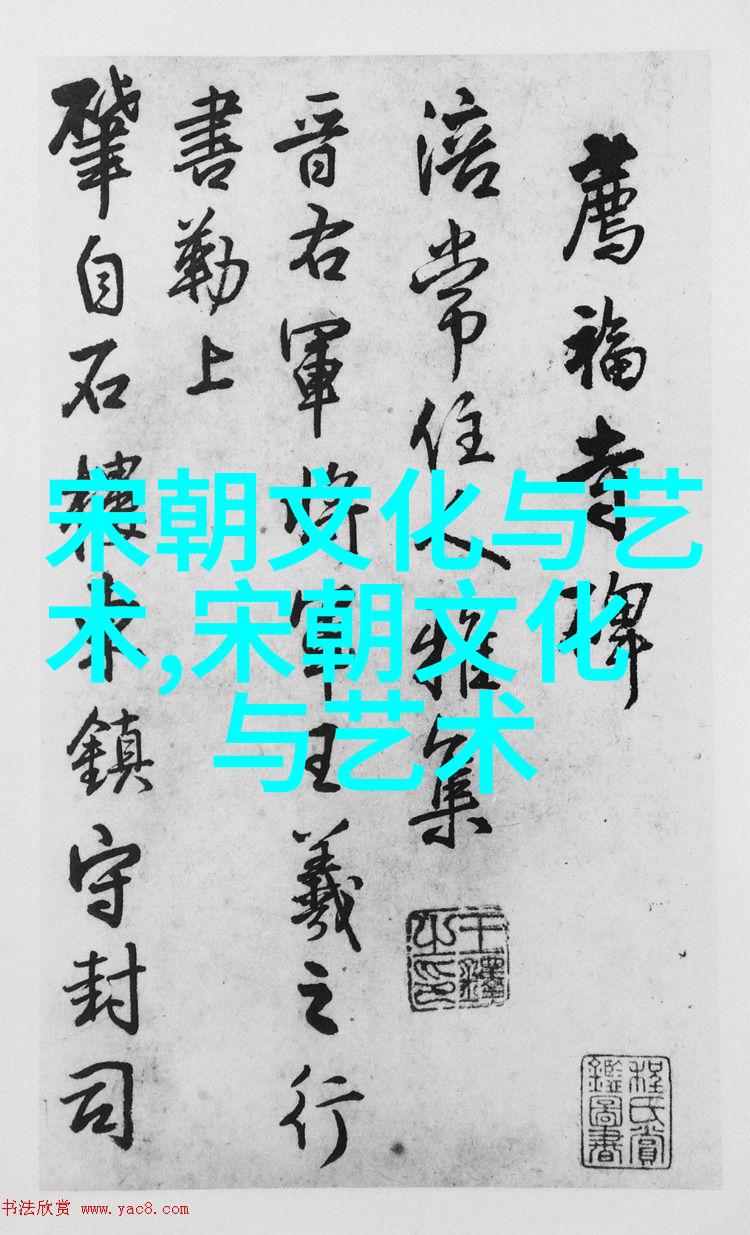 薦福寺碑
涪常住人雅集
晉右軍將軍王羲之行
書勒上
肇自石樓求鎮守封司
王鐸之印
程氏賞鑑圖書
宋朝文化与艺
术,宋朝文化
与艺术
书法欣赏 www.yac8.com